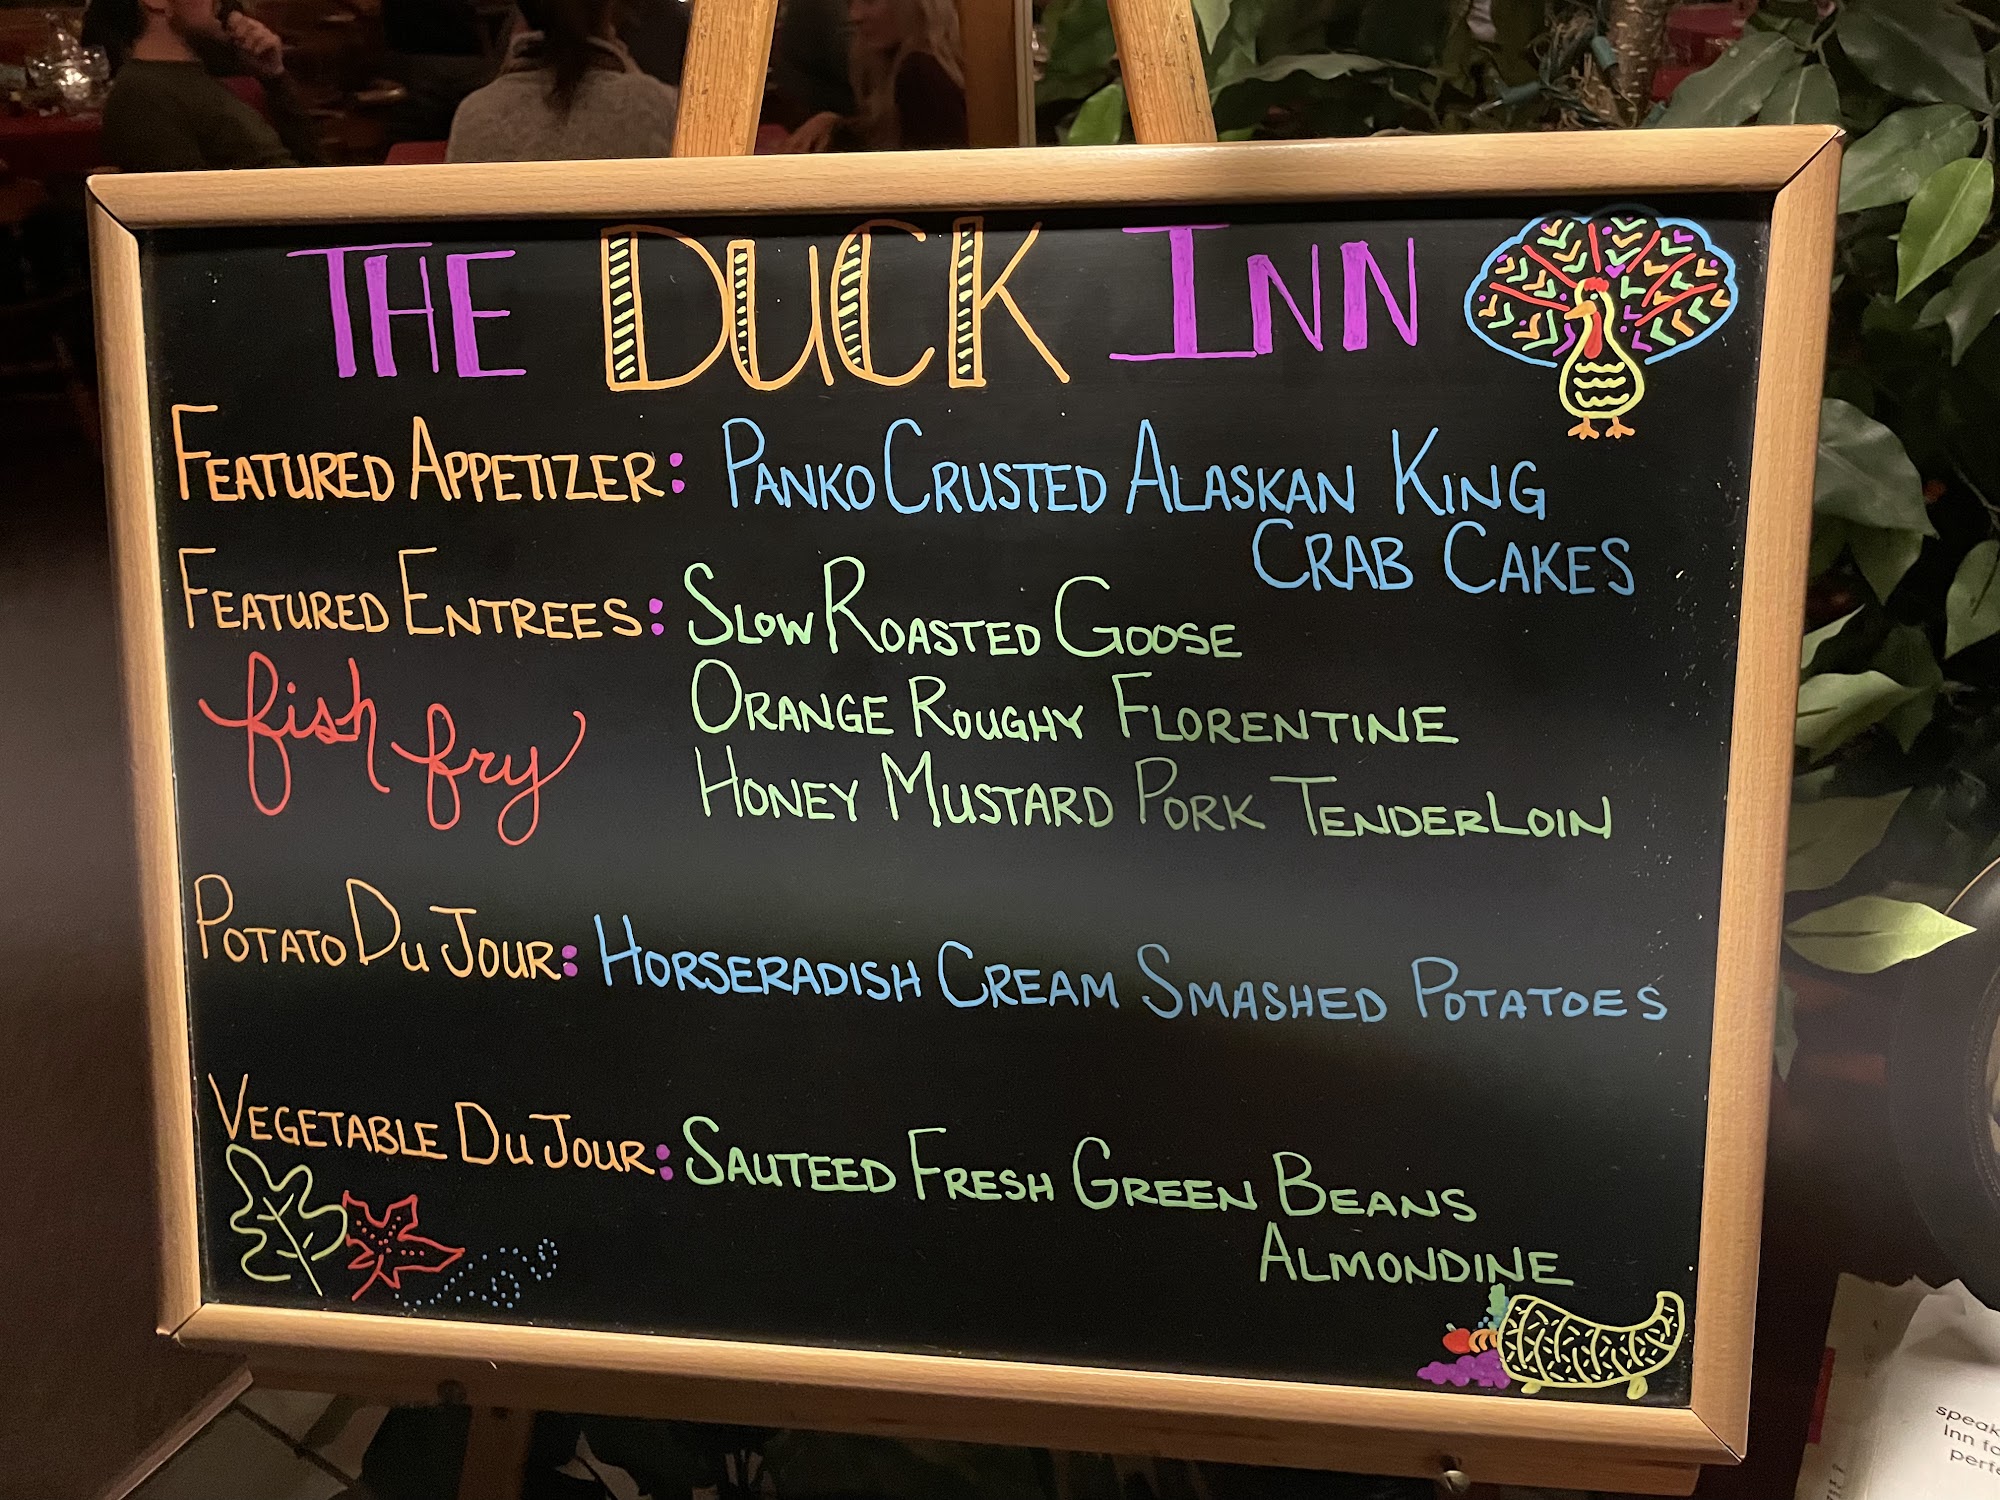 THE DUCK INN
FEATURED APPETIZER: PANKO CRUSTED ALASKAN KING
CRAB CAKES
FEATURED ENTREES: SLOW ROASTED GOOSE
fish fry
ORANGE ROUGHY FLORENTINE
HONEY MUSTARD PORK TENDERLOIN
POTATO DU JOUR: HORSERADISH CREAM SMASHED POTATOES
VEGETABLE DU JOUR: SAUTEED FRESH GREEN BEANS
ALMONDINE
speak
Inn fo
perfe